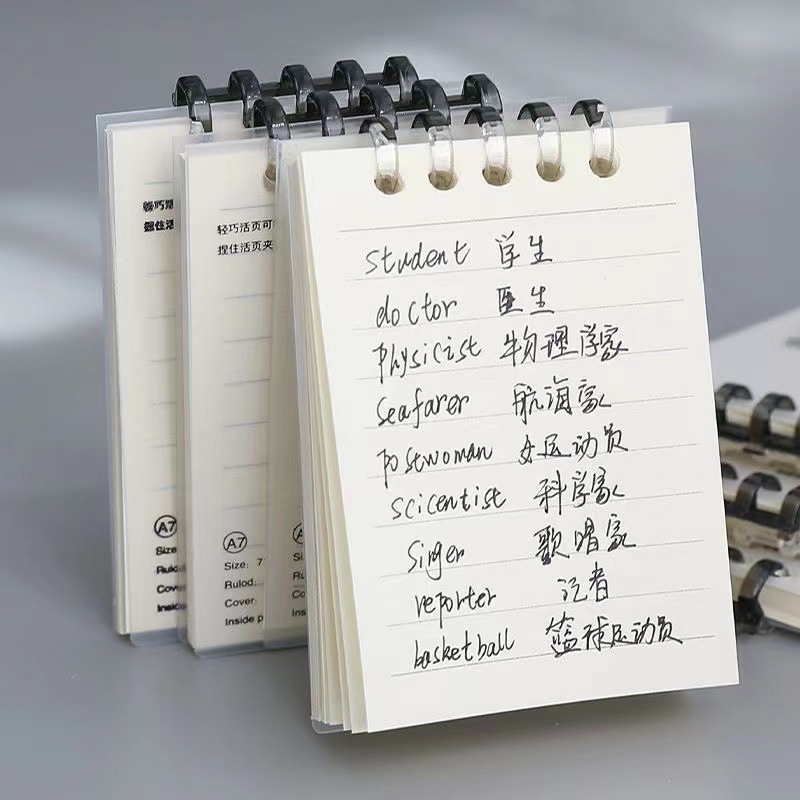 student 学生
doctor 医生
physicist 物理学家
seafarer 航海家
postwoman 女运动员
scicentist 科学家
Singer 歌唱家
reporter 记者
basketball 篮球运动员
轻巧活页可
捏住活页夹
A7
Size: 7
Rulod:
Cover:
Inside p
轻巧活
捏住活
A7
Size
Ruled
Cove
Inside